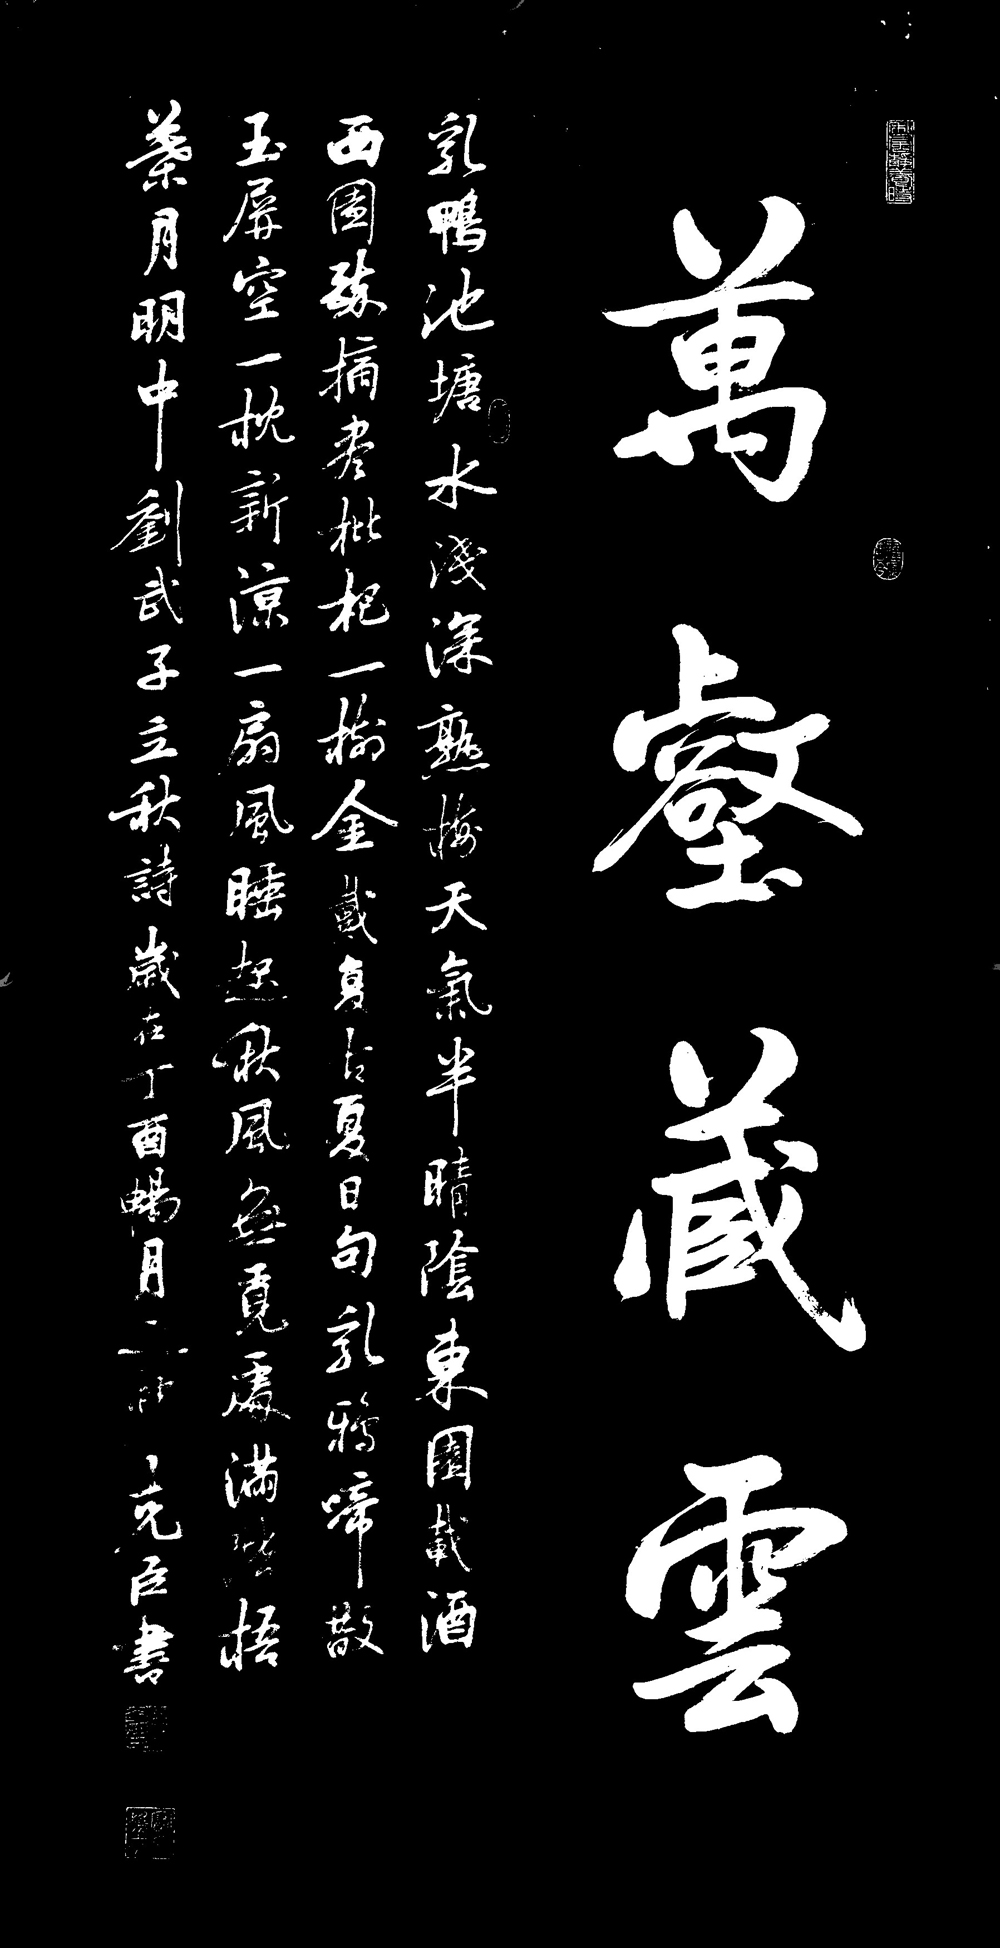 萬壑藏雲
乳鴨池塘水淺深熟梅天氣半晴陰東園載酒
西園醉摘盡枇杷一樹金戴复古夏日句乳鴉啼散
玉屏空一枕新涼一扇風睡起秋風無覓處滿階梧
葉月明中劉武子立秋詩歲在丁酉暢月克臣書